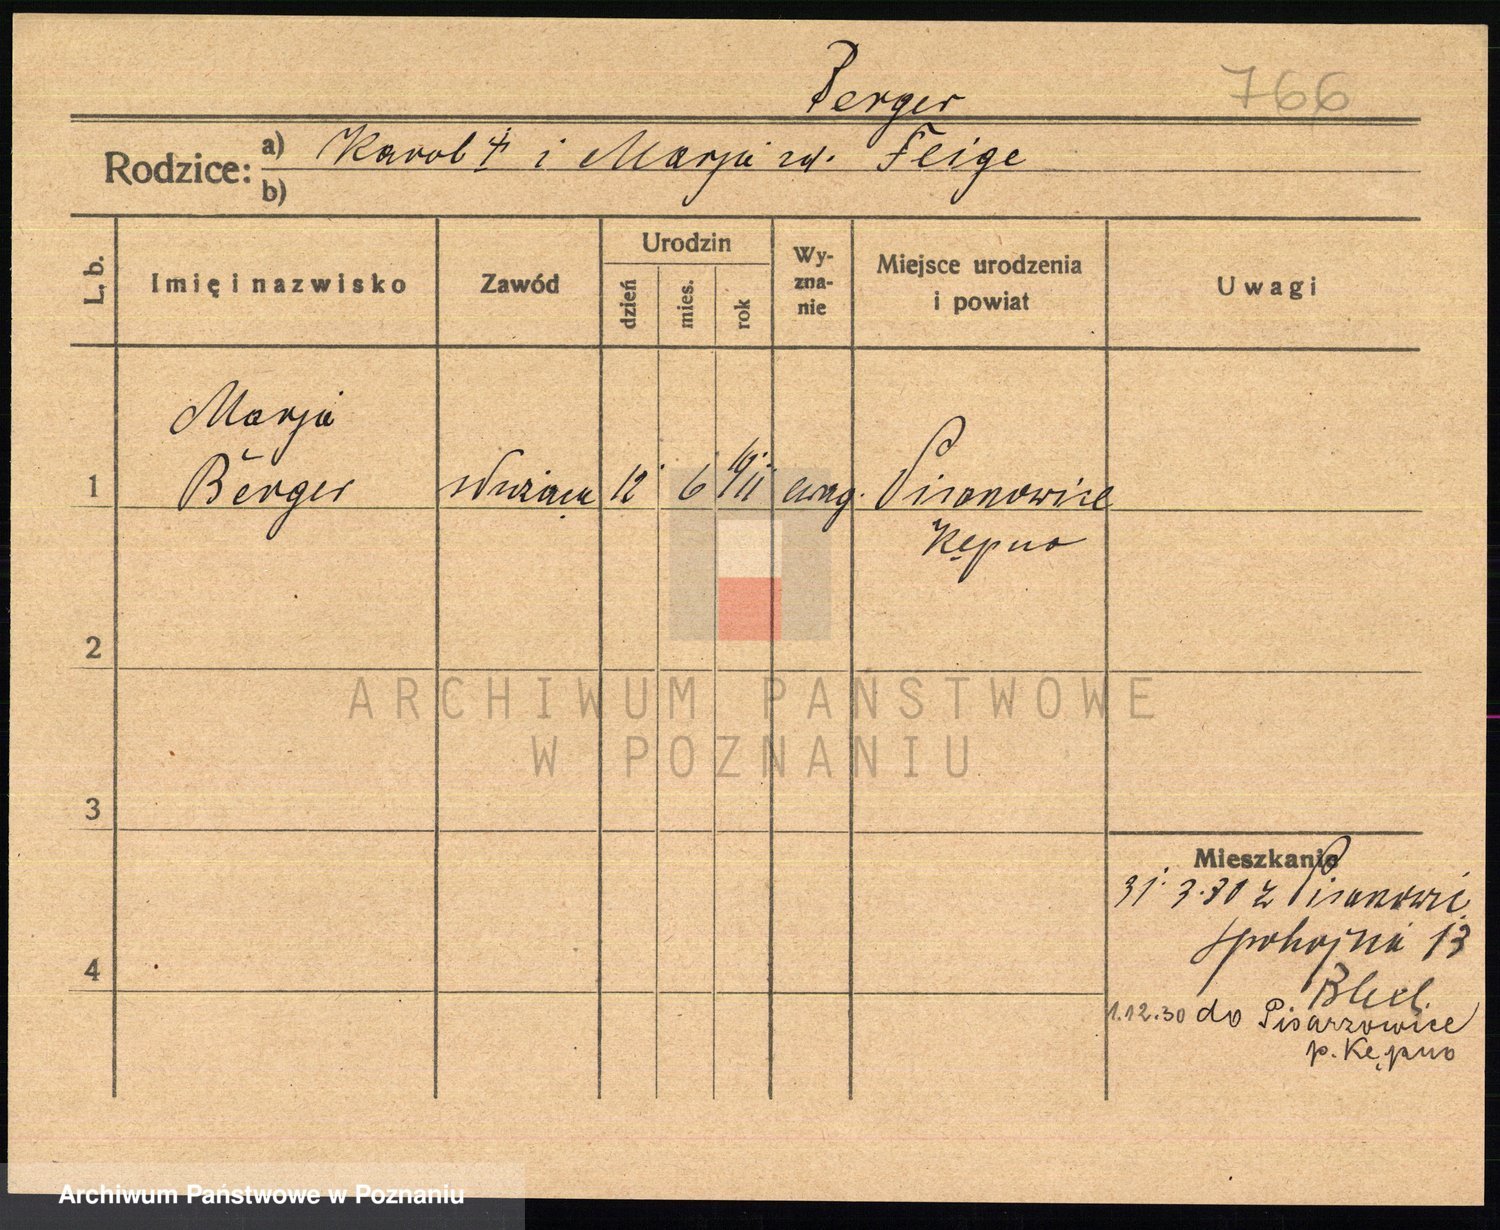 Berger
766
Rodzice: a) Karol ‡ i Marja zd. Feige
b)
L. b.
Imię i nazwisko
Zawód
Urodzin
dzień
mies.
rok
Wy-
zna-
nie
Miejsce urodzenia
i powiat
Uwagi
Marja
1 Berger służąca 12 6 1911 ewag. Pisanowice
Kępno
2
ARCHIWUM PAŃSTWOWE
W POZNANIU
3
Mieszkanie
31. 3. 30 z Pisanowic
Spokojna 13
4
1.12.30 do Pisarzowice
p. Kępno
Archiwum Państwowe w Poznaniu